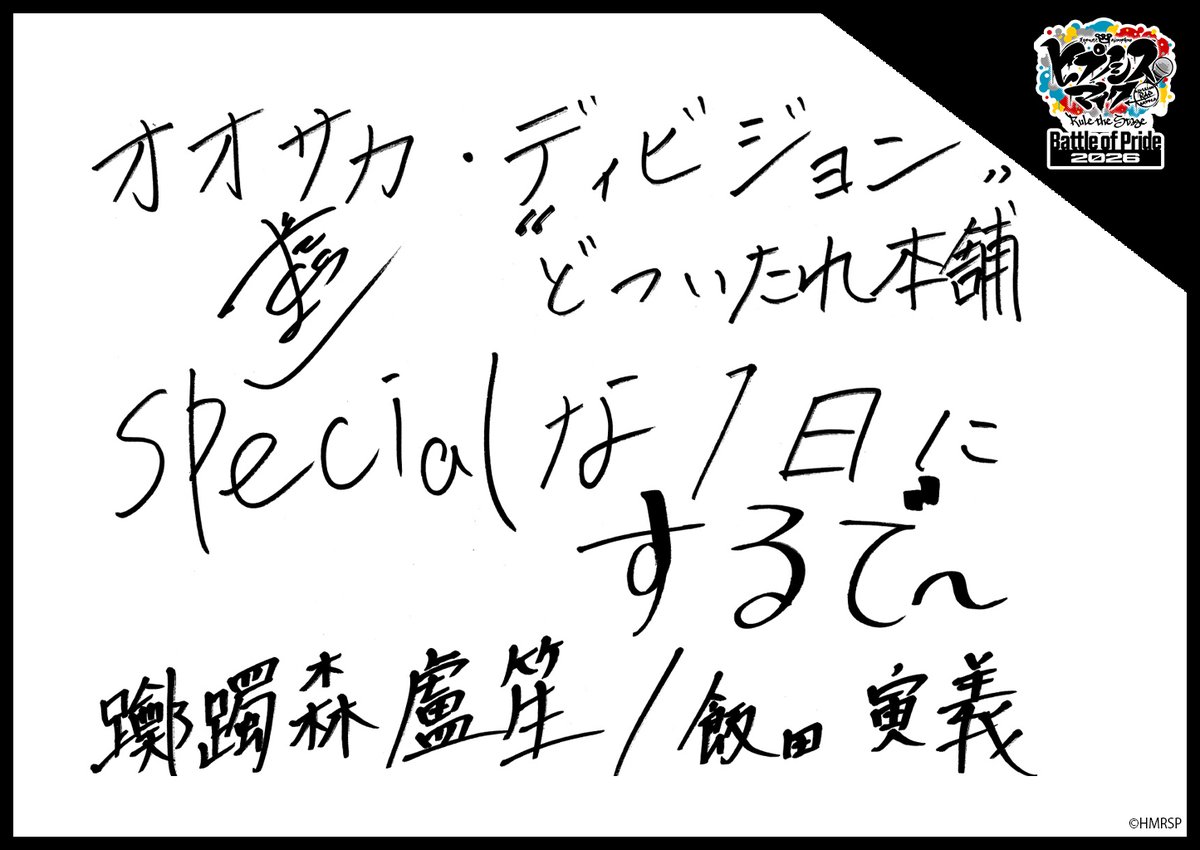 オオサカ・ディビジョン
“どついたれ本舗”
specialな1日に
するで〜
躑躅森盧笙/飯田寅義
ヒプノシスマイク
Rule the Stage
Battle of Pride
2026
©HMRSP